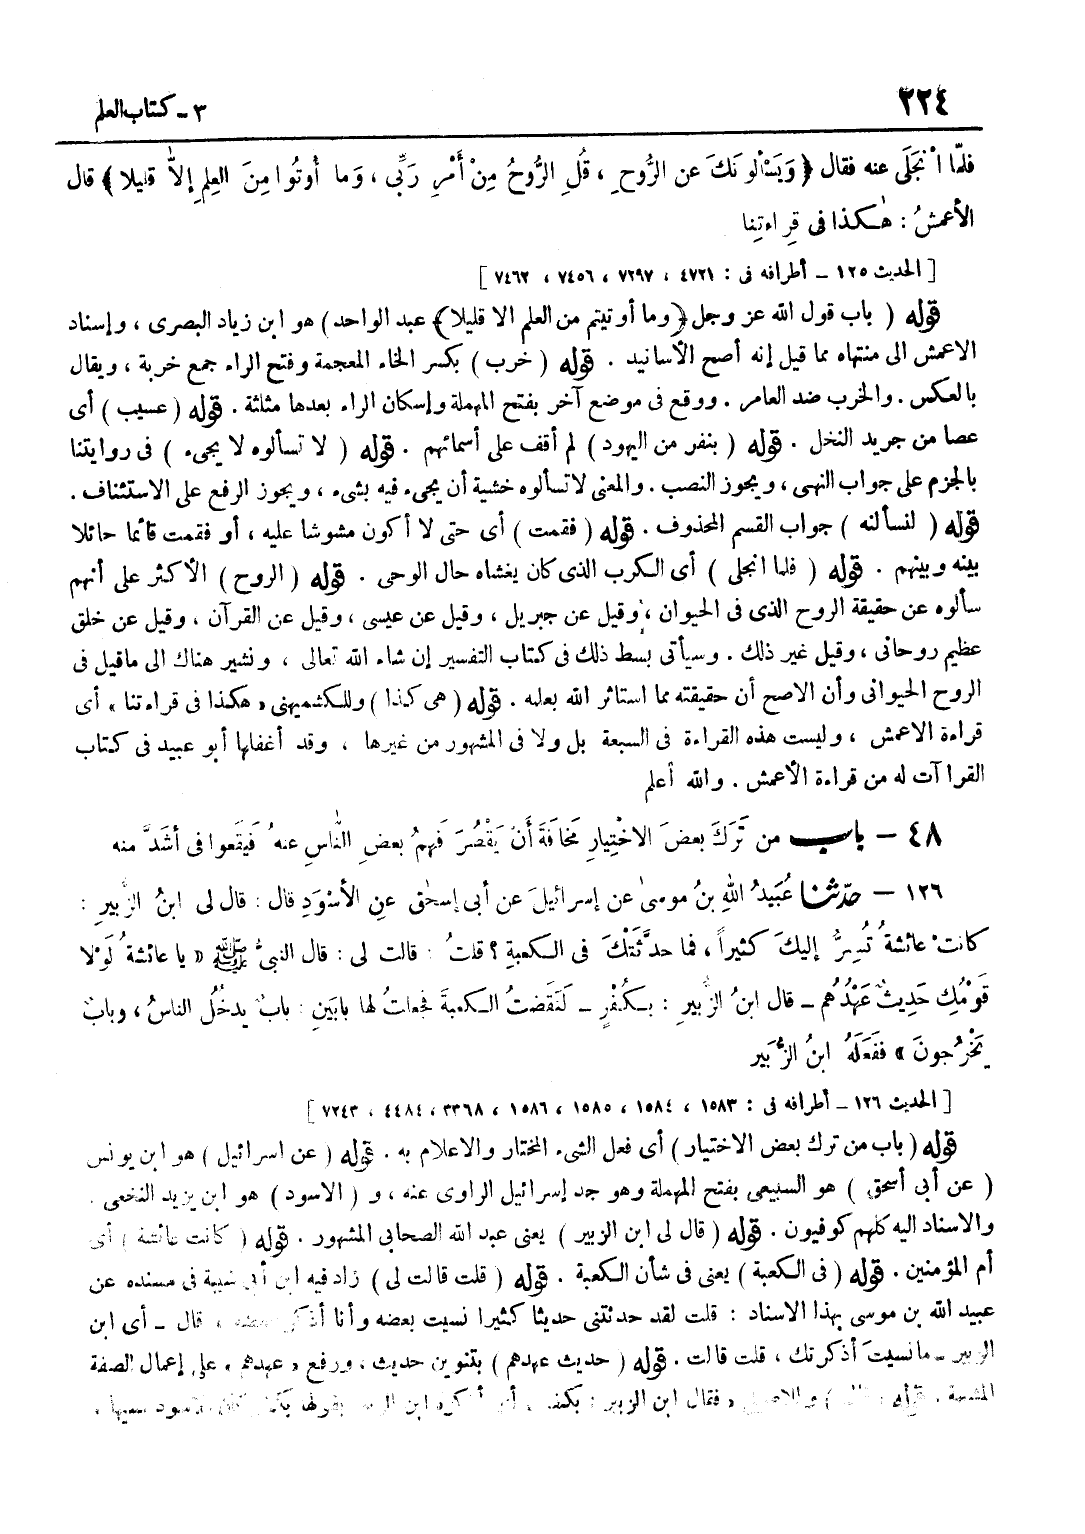 ٢٢٤
٣ - كتاب العلم
فلمّا انْجَلَى عنه فقال ﴿ وَيَسْألونَكَ عن الرُّوحِ ، قُلِ الرُّوحُ مِنْ أَمْرِ رَبِّى ، وَما أُوتُوا مِنَ العِلمِ إلاَّ قليلا ﴾ قال
الأعمشُ : هٰكذا فى قِراءتِنا
[ الحديث ١٢٥ - أطرافه فى : ٤٧٢١ ، ٧٢٩٧ ، ٧٤٥٦ ، ٧٤٦٢ ]
قوله ( باب قول الله عز وجل ﴿ وما أوتيتم من العلم الا قليلا ﴾ عبد الواحد ) هو ابن زياد البصرى ، وإسناد
الاعمش الى منتهاه مما قيل إنه أصح الأسانيد . قوله ( خرب ) بكسر الخاء المعجمة وفتح الراء جمع خربة ، ويقال
بالعكس . والخرب ضد العامر . ووقع فى موضع آخر بفتح المهملة وإسكان الراء بعدها مثلثة . قوله ( عسيب ) أى
عصا من جريد النخل . قوله ( بنفر من اليهود ) لم أقف على أسمائهم . قوله ( لا تسألوه لا يجىء ) فى روايتنا
بالجزم على جواب النهى ، ويجوز النصب . والمعنى لا تسألوه خشية أن يجىء فيه بشىء ، ويجوز الرفع على الاستئناف .
قوله ( لنسألنه ) جواب القسم المحذوف . قوله ( فقمت ) أى حتى لا أكون مشوشا عليه ، أو فقمت قائما حائلا
بينه وبينهم . قوله ( فلما انجلى ) أى الكرب الذى كان يغشاه حال الوحى . قوله ( الروح ) الأكثر على أنهم
سألوه عن حقيقة الروح الذى فى الحيوان ، وقيل عن جبريل ، وقيل عن عيسى ، وقيل عن القرآن ، وقيل عن خلق
عظيم روحانى ، وقيل غير ذلك . وسيأتى بسط ذلك فى كتاب التفسير إن شاء الله تعالى ، ونشير هناك الى ماقيل فى
الروح الحيوانى وأن الاصح أن حقيقته مما استأثر الله بعلمه . قوله ( هى كذا ) وللكشميهنى « هكذا فى قراءتنا » أى
قراءة الاعمش ، وليست هذه القراءة فى السبعة بل ولا فى المشهور من غيرها ، وقد أغفلها أبو عبيد فى كتاب
القراآت له من قراءة الأعمش . والله أعلم
٤٨ - باب من تَرَكَ بعضَ الاخْتِيارِ مَخافَةَ أَنْ يَقْصُرَ فَهمُ بعضِ النَّاسِ عنهُ فيَقَعوا فى أشَدَّ منه
١٢٦ - حدّثنا عُبَيدُ اللهِ بنُ موسىٰ عن إسرائيلَ عن أبى إسحٰقَ عنِ الأسْوَدِ قال : قال لى ابنُ الزُّبيرِ :
كانتْ عائشةُ تُسِرُّ إليكَ كثيراً ، فما حدَّثَتْكَ فى الكعبةِ ؟ قلتُ : قالت لى : قال النبىُّ ﷺ « يا عائشةُ لَوْلا
قَوْمُكِ حَدِيثٌ عَهْدُهُم - قال ابنُ الزُّبيرِ : بكُفْرٍ - لَنَقَضتُ الكعبةَ فجعلتُ لها بابَينِ : بابٌ يدخُلُ الناسُ ، وبابٌ
يَخْرُجونَ » ففَعَلَهُ ابنُ الزُّبَير
[ الحديث ١٢٦ - أطرافه فى : ١٥٨٣ ، ١٥٨٤ ، ١٥٨٥ ، ١٥٨٦ ، ٣٣٦٨ ، ٤٤٨٤ ، ٧٢٤٣ ]
قوله ( باب من ترك بعض الاختيار ) أى فعل الشىء المختار والاعلام به . قوله ( عن اسرائيل ) هو ابن يونس
( عن أبى أسحق ) هو السبيعى بفتح المهملة وهو جد إسرائيل الراوى عنه ، و ( الاسود ) هو ابن يزيد النخعى .
والاسناد اليه كلهم كوفيون . قوله ( قال لى ابن الزبير ) يعنى عبد الله الصحابى المشهور . قوله ( كانت عائشة ) أى
أم المؤمنين . قوله ( فى الكعبة ) يعنى فى شأن الكعبة . قوله ( قلت قالت لى ) زاد فيه ابن أبى شيبة فى مسنده عن
عبيد الله بن موسى بهذا الاسناد : قلت لقد حدثتنى حديثا كثيرا نسيت بعضه وأنا أذكر بعضه ، قال - أى ابن
الزبير - ما نسيتَ أذكرتك ، قلت قالت . قوله ( حديث عهدهم ) بتنوين حديث ، ورفع « عهدهم » على إعمال الصفة
المشبهة . قوله ( قال ) وللاصيلى « فقال ابن الزبير : بكفر » أى أذكره ابن الزبير بقولها بكفر كان الاسود نسيها ،